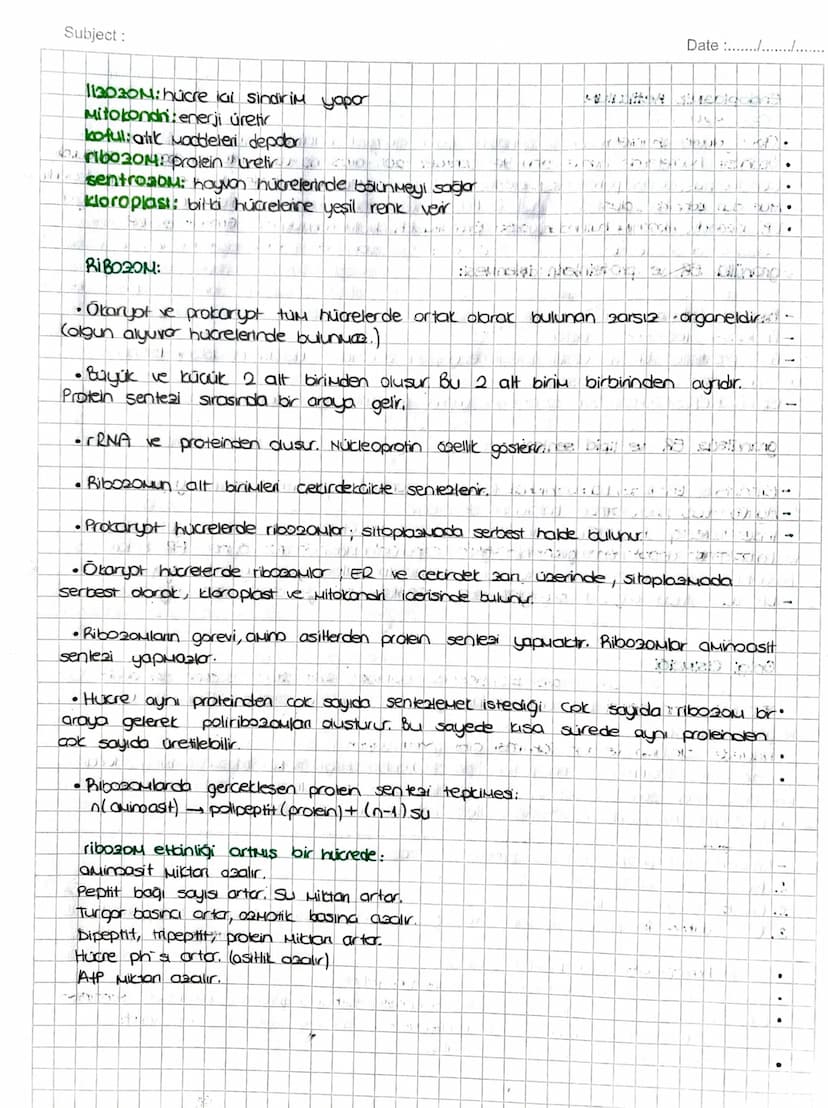 Subject :
Date :......./......./.......
lizozom: hücre içi sindirim yapar
Mitokondri: enerji üretir
koful: atık maddeleri depolar
ribozom: protein üretir
sentrozom: hayvan hücrelerinde bölünmeyi sağlar
kloroplast: bitki hücrelerine yeşil renk verir
RİBOZOM:
• Ökaryot ve prokaryot tüm hücrelerde ortak olarak bulunan zarsız organeldir.
(olgun alyuvar hücrelerinde bulunmaz.)
• Büyük ve küçük 2 alt birimden oluşur. Bu 2 alt birim birbirinden ayrıdır.
Protein sentezi sırasında bir araya gelir.
• rRNA ve proteinden oluşur. Nücleoprotin özellik gösterir.
• Ribozomun alt birimleri çekirdekçikte sentezlenir.
• Prokaryot hücrelerde ribozomlar; sitoplazmada serbest halde bulunur.
• Ökaryot hücrelerde ribozomlar; ER ve çekirdek zarı üzerinde, sitoplazmada
serbest olarak, kloroplast ve mitokondri içerisinde bulunur.
• Ribozomların görevi, amino asitlerden protein sentezi yapmaktır. Ribozomlar aminoasit
sentezi yapmazlar.
• Hücre aynı proteinden çok sayıda sentezlemek istediği çok sayıda ribozom bir
araya gelerek poliribozomları oluşturur. Bu sayede kısa sürede aynı proteinden
çok sayıda üretilebilir.
• Ribozomlarda gerçekleşen protein sentezi tepkimesi:
n(aminoasit) → polipeptit(protein) + (n-1) su
ribozom etkinliği artmış bir hücrede:
aminoasit miktarı azalır.
Peptit bağı sayısı artar. Su miktarı artar.
Turgor basıncı artar, ozmotik basıncı azalır.
Dipeptit, tripeptit, protein miktarı artar.
Hücre ph'sı artar. (asitlik azalır)
ATP miktarı azalır.